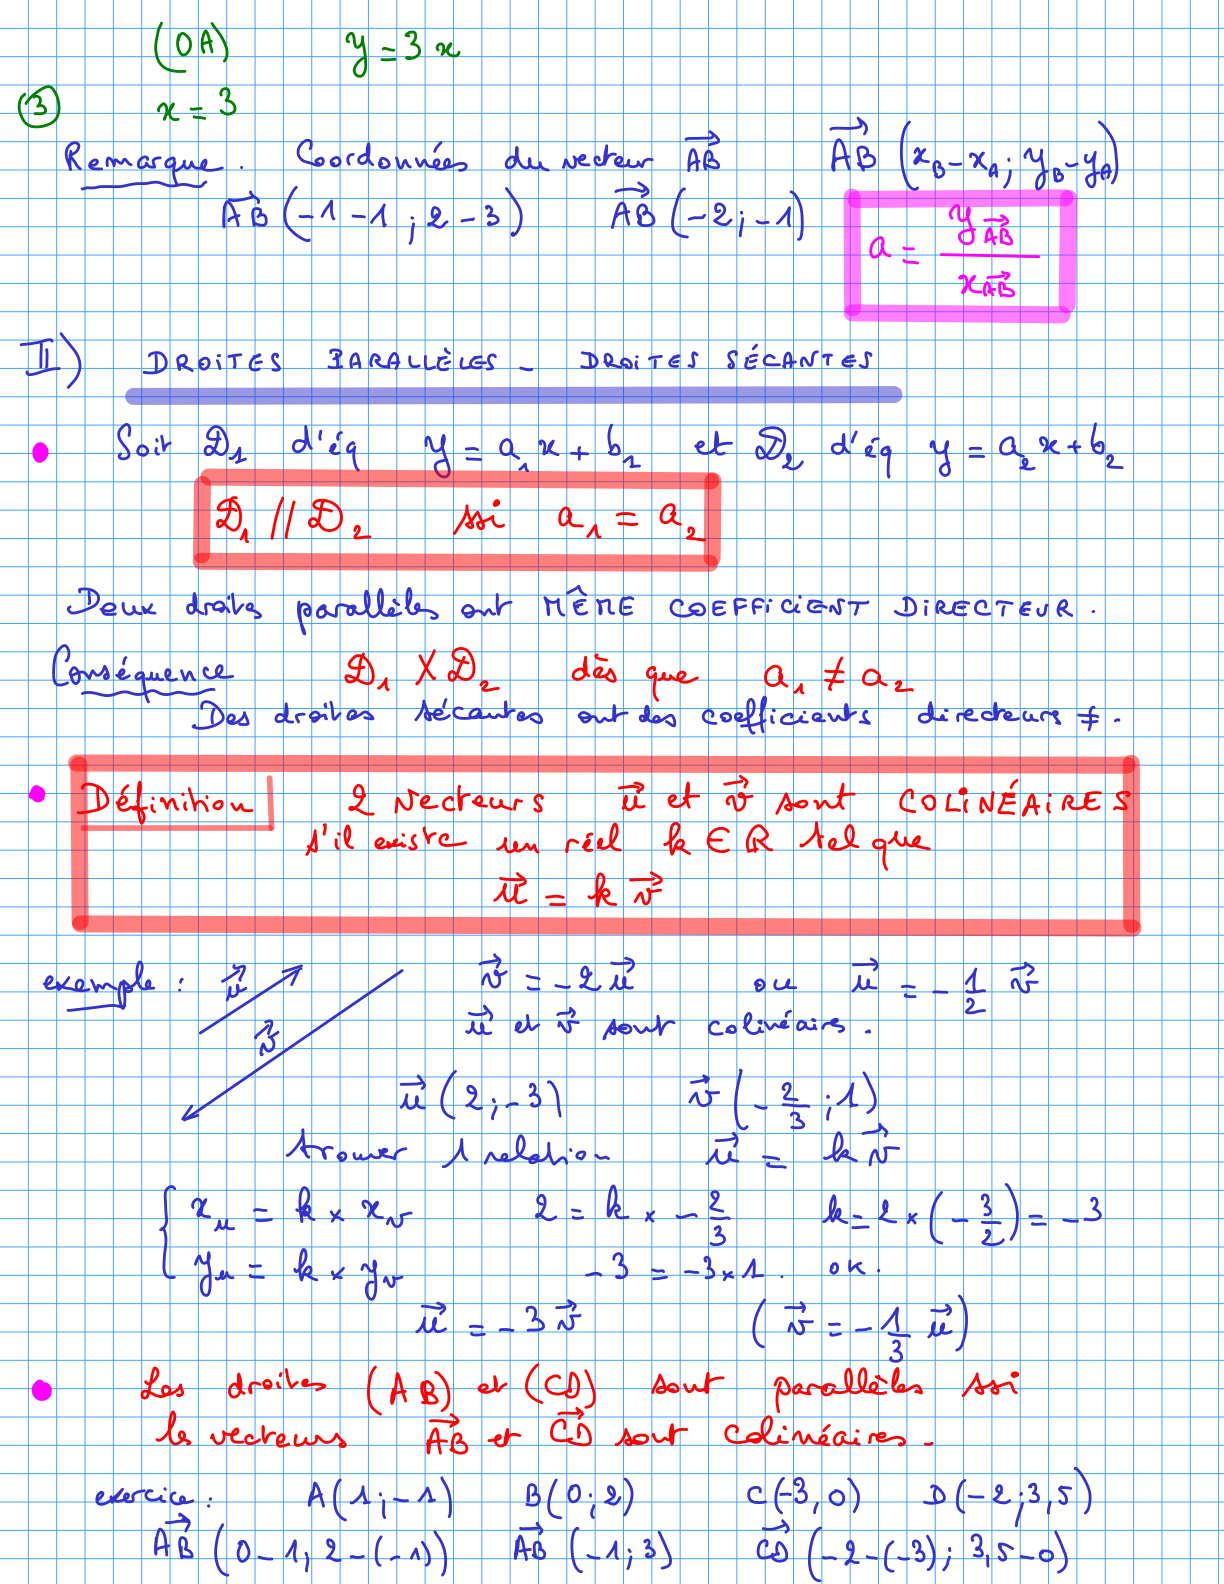 (OA) y = 3x
③ x = 3
Remarque. Coordonnées du vecteur \vec{AB} \vec{AB} (x_B - x_A ; y_B - y_A)
\vec{AB} (-1 - 1 ; 2 - 3) \vec{AB} (-2 ; -1)
a = \frac{y_{\vec{AB}}}{x_{\vec{AB}}}
II) DROITES PARALLÈLES - DROITES SÉCANTES
• Soit D_1 d'éq y = a_1 x + b_1 et D_2 d'éq y = a_2 x + b_2
D_1 // D_2 ssi a_1 = a_2
Deux droites parallèles ont MÊME COEFFICIENT DIRECTEUR.
Conséquence D_1 X D_2 dès que a_1 ≠ a_2
Des droites sécantes ont des coefficients directeurs ≠.
• Définition 2 vecteurs \vec{u} et \vec{v} sont COLINÉAIRES
s'il existe un réel k ∈ R tel que
\vec{u} = k \vec{v}
exemple : \vec{u} \vec{v} = -2 \vec{u} ou \vec{u} = -\frac{1}{2} \vec{v}
\vec{v} \vec{u} et \vec{v} sont colinéaires.
\vec{u} (2 ; -3) \vec{v} (-\frac{2}{3} ; 1)
trouver 1 relation \vec{u} = k \vec{v}
{ x_u = k × x_v 2 = k × -\frac{2}{3} k = 2 × (-\frac{3}{2}) = -3
y_u = k × y_v -3 = -3 × 1. OK.
\vec{u} = -3 \vec{v} (\vec{v} = -\frac{1}{3} \vec{u})
• Les droites (AB) et (CD) sont parallèles ssi
les vecteurs \vec{AB} et \vec{CD} sont colinéaires.
exercice : A(1 ; -1) B(0 ; 2) C(-3, 0) D(-2 ; 3,5)
\vec{AB} (0 - 1 ; 2 - (-1)) \vec{AB} (-1 ; 3) \vec{CD} (-2 - (-3) ; 3,5 - 0)